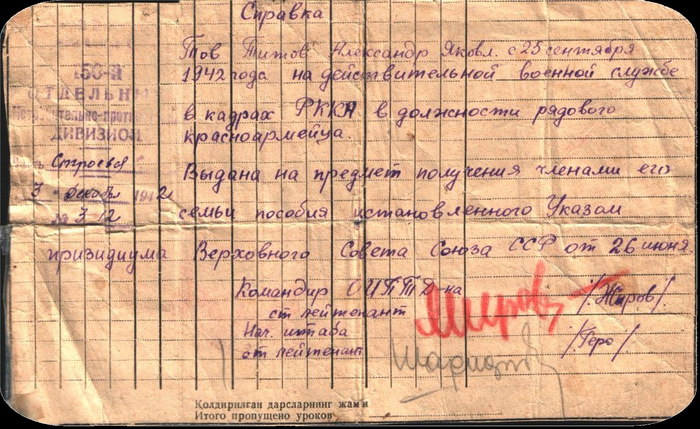 Справка
Тов Титов Александр Яковл. с 25 сентября
1942 года на действительной военной службе
в кадрах РККА в должности рядового
красноармейца.
Выдана на предмет получения членами его
семьи пособия установленного Указом
призидиума Верховного Совета Союза ССР от 26 июня
50-й
ОТДЕЛЬН
ДИВИЗИОН
Строевая
3 декабр 1942
№ 312
Командир ОИПТД-на
ст лейтенант /Жиров/.
Нач. штаба
ст лейтенант /Геро/.
Колдирилган дарсларнинг жами
Итого пропущено уроков